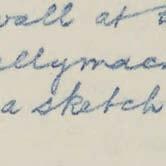 wall at
llymac
a sketch